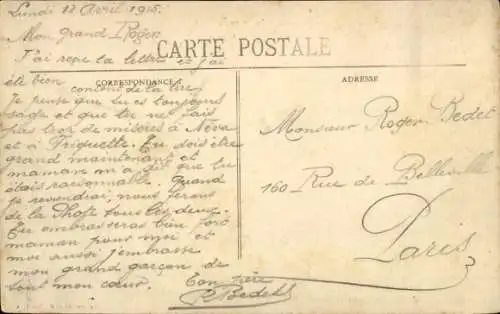 Lundi 12 Avril 1915.
Mon grand Roger
CARTE POSTALE
J'ai reçu ta lettre et j'ai
été bien content de la lire
CORRESPONDANCE
Je pense que tu es toujours
sage et que tu ne fais
pas trop de misères à Néva
et à Friquette. Tu dois être
grand maintenant et
maman m'a dit que tu
étais raisonnable. Quand
je reviendrai, nous ferons
de la tous les deux.
Tu embrasseras bien fort
maman pour moi et
moi aussi j'embrasse
mon grand garçon de
tout mon cœur. Ton père
R Bedet
ADRESSE
Monsieur Roger Bedet
160 Rue de Belleville
Paris